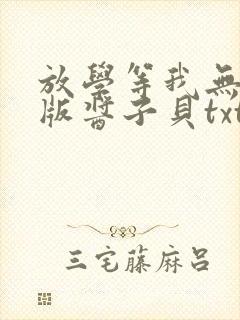 放學等我無
版醬子貝txt
三宅藤麻呂